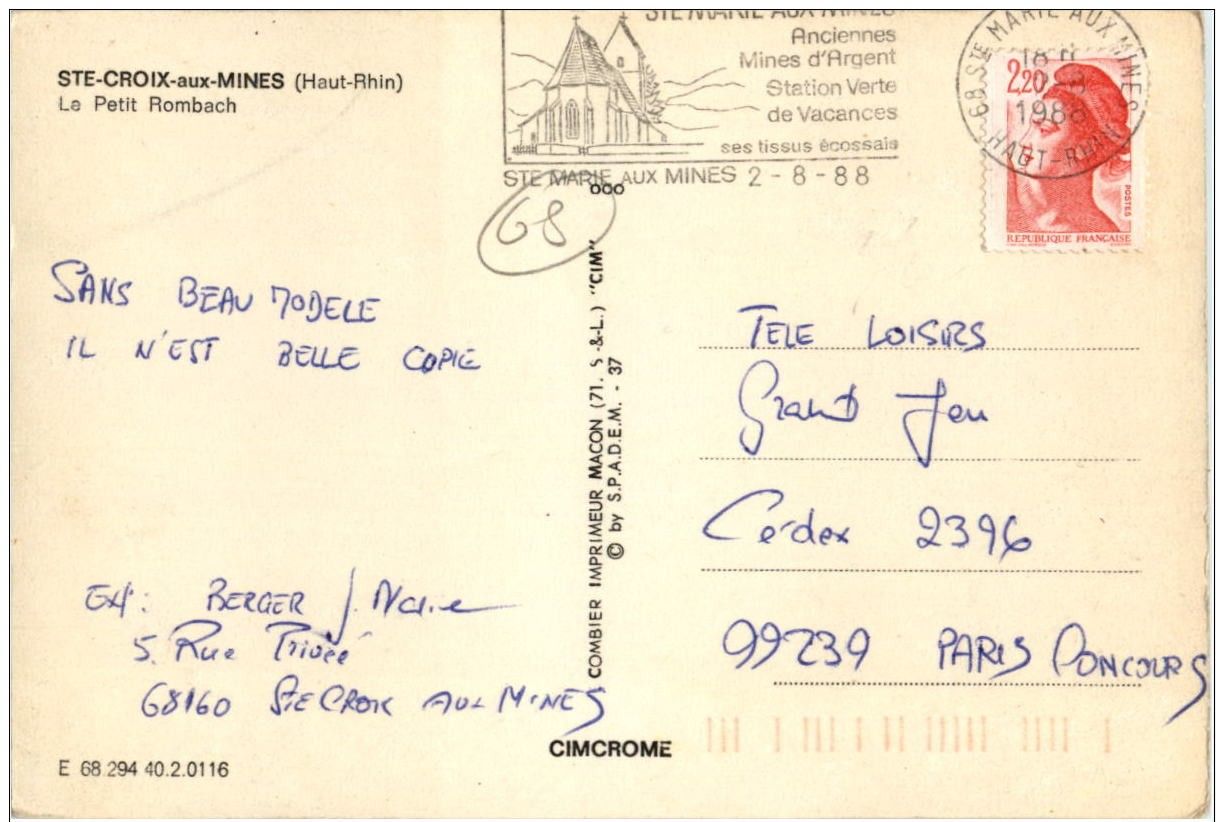 STE-CROIX-aux-MINES (Haut-Rhin)
Le Petit Rombach
STE MARIE AUX MINES
Anciennes
Mines d'Argent
Station Verte
de Vacances
ses tissus écossais
STE MARIE AUX MINES 2-8-88
68 STE MARIE AUX MINES
18 H
1988
HAUT-RHIN
2,20
POSTES
REPUBLIQUE FRANÇAISE
000
68
SANS BEAU MODELE
IL N'EST BELLE COPIE
TELE LOISIRS
Grand Jeu
Cedex 2396
99239 PARIS CONCOURS
EXP: BERGER J. Marie
5. Rue Privée
68160 STE CROIX AUX MINES
COMBIER IMPRIMEUR MACON (71. S.-&-L.) "CIM"
© by S.P.A.D.E.M. - 37
CIMCROME
E 68.294 40.2.0116